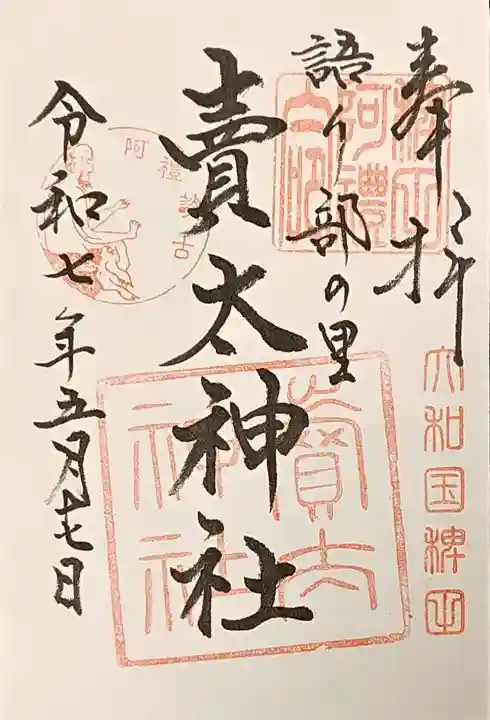 奉拝
大和国稗田
語り部の里
賣太神社
賣太神社
阿禮
令和七年五月十七日